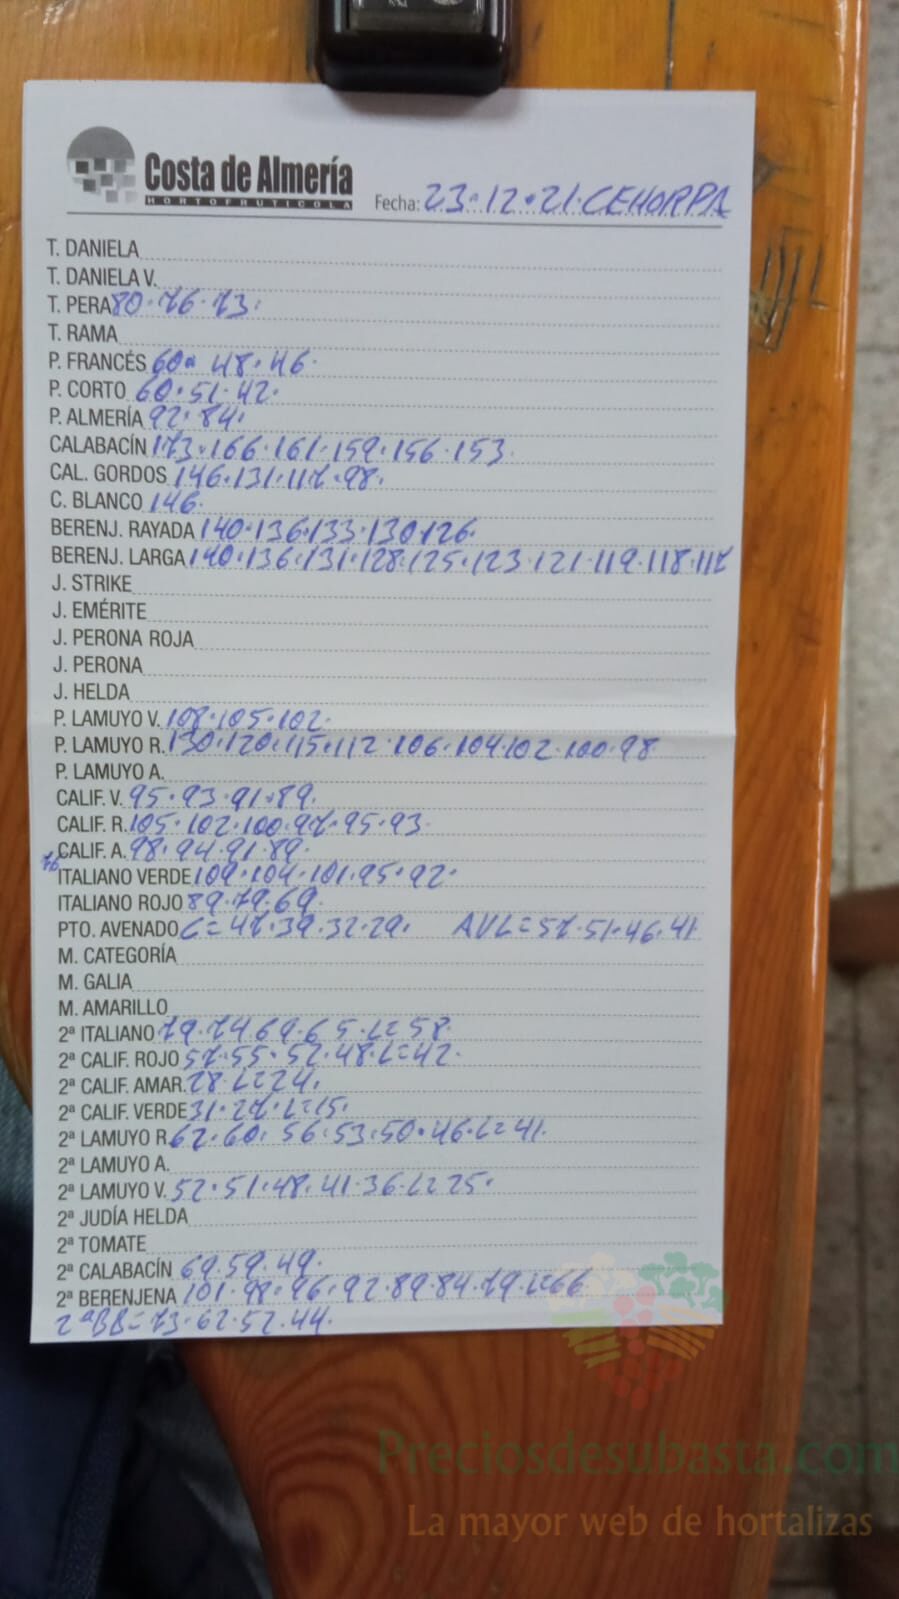 Costa de Almería
HORTOFRUTICOLA
Fecha: 23·12·21·CEHORPA
T. DANIELA
T. DANIELA V.
T. PERA 80·76·73·
T. RAMA
P. FRANCÉS 60· 48·46·
P. CORTO 60·51·42·
P. ALMERÍA 92·84·
CALABACÍN 173·166·161·159·156·153·
CAL. GORDOS 146·131·117·98·
C. BLANCO 146·
BERENJ. RAYADA 140·136·133·130·126·
BERENJ. LARGA 140·136·131·128·125·123·121·119·118·117
J. STRIKE
J. EMÉRITE
J. PERONA ROJA
J. PERONA
J. HELDA
P. LAMUYO V. 108·105·102·
P. LAMUYO R. 130·120·115·112·106·104·102·100·98
P. LAMUYO A.
CALIF. V. 95·93·91·89·
CALIF. R. 105·102·100·97·95·93·
CALIF. A. 98·94·91·89·
76
ITALIANO VERDE 109·104·101·95·92·
ITALIANO ROJO 89·79·69·
PTO. AVENADO C=47·39·32·29· AVL=57·51·46·41
M. CATEGORÍA
M. GALIA
M. AMARILLO
2ª ITALIANO 79·74·69·65·L=58·
2ª CALIF. ROJO 57·55·52·48·L=42·
2ª CALIF. AMAR. 28·L=24·
2ª CALIF. VERDE 31·27·L=15·
2ª LAMUYO R. 62·60·56·53·50·46·L=41·
2ª LAMUYO A.
2ª LAMUYO V. 52·51·48·41·36·L=25·
2ª JUDÍA HELDA
2ª TOMATE
2ª CALABACÍN 69·59·49·
2ª BERENJENA 101·98·96·92·89·84·79·L=66
2ªBB=73·62·52·44·
Preciosdesubasta.com
La mayor web de hortalizas